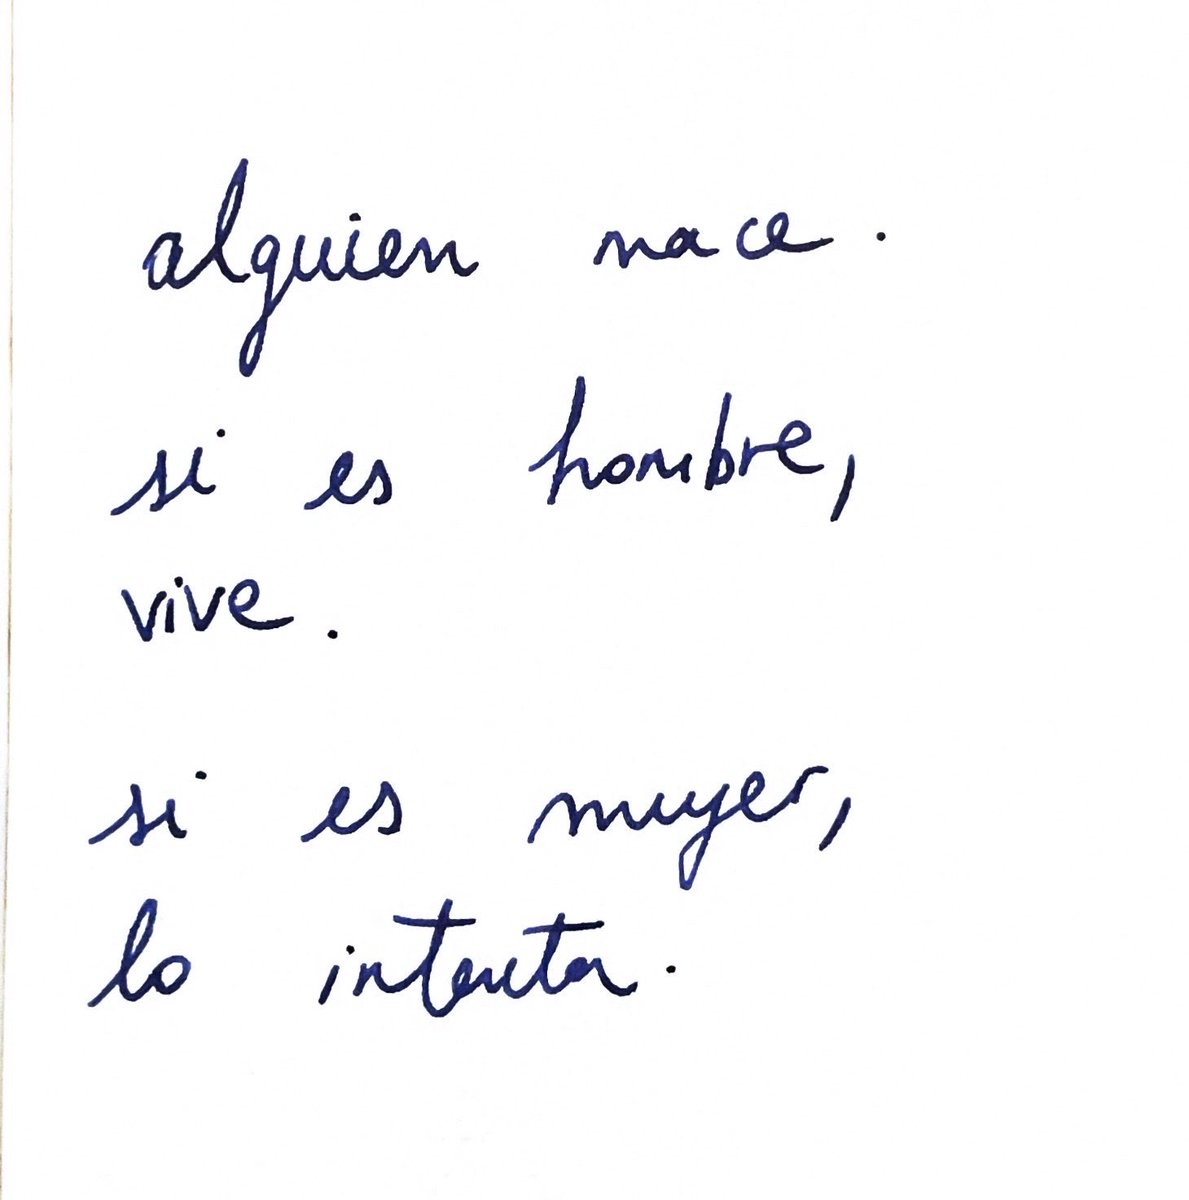 alguien nace.
si es hombre,
vive.
si es mujer,
lo intenta.